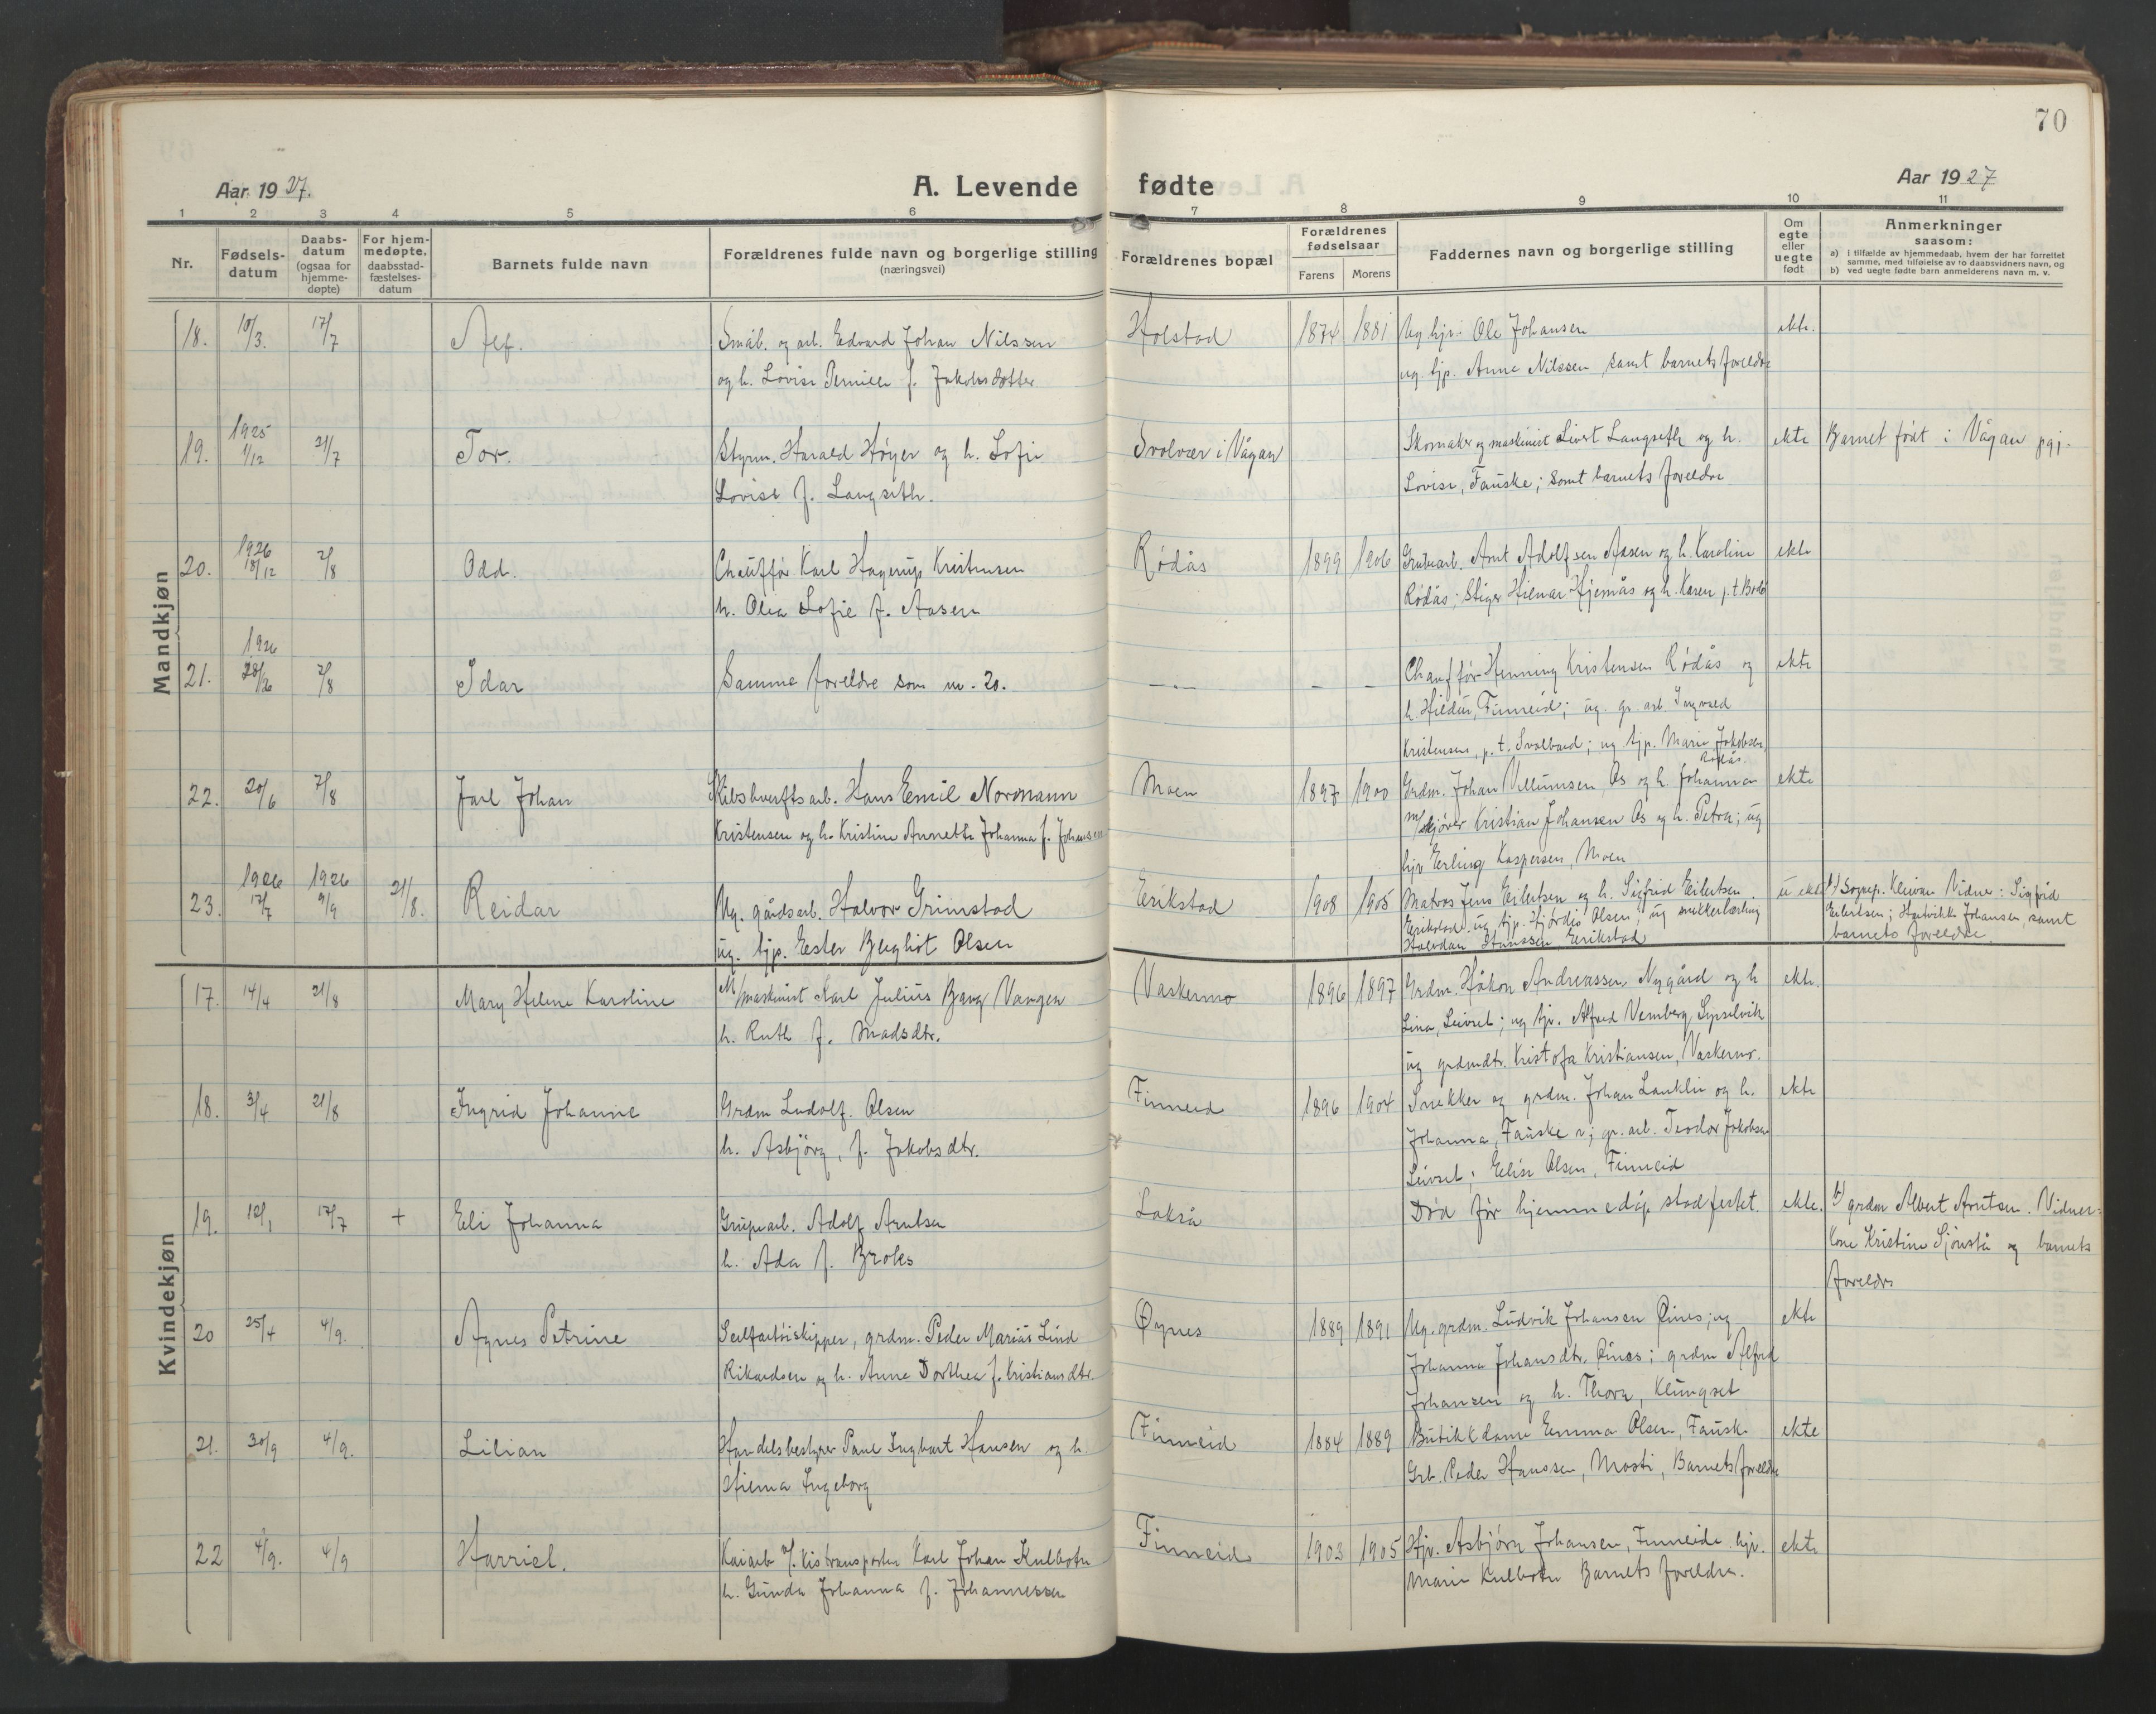 70
Aar 1927.
A. Levende fødte
Aar 1927
1 2 3 4 5 6 7 8 9 10 11
Nr.
Fødsels-
datum
Daabs-
datum
(ogsaa for
hjemme-
døpte)
For hjem-
medøpte,
daabsstad-
fæstelses-
datum
Barnets fulde navn
Forældrenes fulde navn og borgerlige stilling
(næringsvei)
Forældrenes bopæl
Forældrenes
fødselsaar
Farens Morens
Faddernes navn og borgerlige stilling
Om
egte
eller
uegte
født
Anmerkninger
saasom:
a) i tilfælde av hjemmedaab, hvem der har forrettet
samme, med tilføielse av to daabsvidners navn, og
b) ved uegte fødte barn anmelderens navn m. v.
Mandkjøn
18. 10/3. 17/7 Alf. Småb. og arb. Edvard Johan Nilssen Holstad 1874 1881 Ug. hjv. Ole Johansen ekte.
og h. Lovise Pernille f. Jakobsdotter ug. tjp. Anne Nilssen samt barnets foreldre
1925
19. 1/12 21/7 Tor. Styrm. Harald Høyer og h. Sofie Svolvær i Vågan Skomaker og maskinist Sivert Langseth og h. ekte Barnet født i Vågan pgj.
Lovise f. Langseth. Lovise, Fauske; samt barnets foreldre
1926
20. 18/12 2/8 Odd. Chauffør Karl Hagerup Kristensen Rødås 1899 1906 Grubearb. Arnt Adolfsen Aasen og h. Karoline ekte
h. Olea Sofie f. Aasen Rødås; Stiger Hilmar Hjemås og h. Karen p.t. Bodø
1926
21. 2/8 Idar Samme foreldre som nr. 20. — „ — — — Chauffør Henning Kristensen Rødås og ekte
h. Hildur, Finneid; ug. gr. arb. Ingvald
Kristensen, p.t. Svalbard; ug. tjp. Marie Jakobsen,
Rødås.
22. 20/6 7/8 Jarl Johan Skibshverftsarb. Hans Emil Normann Moen 1897 1900 Grdm. Johan Villumsen, Os og h. Johanna ekte
Kristensen og h. Kristine Annette Johanna f. Johansen Kristian Johansen Os og h. Petra; ug
hjv Erling Kaspersen, Moen
1926 1926
23. 17/7 9/9 21/8. Reidar Ug. gårdsarb. Halvor Grimstad Erikstad 1908 1905 Matros Jens Eilertsen og h. Sigfrid Eilertsen u ekte Sogpr. Vidner: Sigfrid
ug. tjp. Ester Bergliot Olsen Erikstad ug. tjp. Hjørdis Olsen; ug snekkerlærling Eilertsen; Johansen, samt
Halvdan Hanssen Erikstad barnets foreldre.
Kvindekjøn
17. 14/4 21/8 Mary Helene Karoline M/maskinist Karl Julius Bang Vangen Vaskermo 1896 1897 Grdm. Håkon Andreassen Nygård og h ekte.
h. Ruth f. Madsdtr. Lina, Leivset; ug tjv. Alfred Vemberg,
ug grdmdtr. Kristofa Kristiansen, Vaskermo.
18. 3/4 21/8 Ingrid Johanne Grdm Ludolf Olsen Finneid 1896 1904 Snekker og grdm. Johan Lanklin og h. ekte
h. Asbjørg, f. Jakobsdtr. Johanna, Fauske; gr. arb. Teodor Jakobsen
Leivset; Elise Olsen, Finneid
19. 12/1 17/7 + Eli Johanna Grubearb. Adolf Arntsen Lakså Død før hjemmedåp stadfestet. ekte. b) grdm Albert Arntsen. Vidner:
h. Ada f. Broks Kone Kristine Sjønstå og barnets
foreldre
20 25/4 4/9. Agnes Petrine Seilfartøiskipper, grdm. Peder Marius Lind Øynes 1889 1891 Ug. grdm. Ludvik Johansen Øines; ug ekte
Rikardsen og h. Anne Dorthea f. Kristiansdtr. Johanna Johansdtr. Øines; grdm Alfred
Johansen og h. Thora, Klungset
21. 30/9 4/9. Lilian Handelsbestyrer Paul Ingbart Hansen og h. Finneid 1884 1889 Butikkdame Emma Olsen, Fauske ekte
Hilma Ingeborg Grb. Peder Hanssen, Mosti, Barnets foreldre
22 4/9. 4/9 Harriet. Kaiarb v/ kistransporten Karl Johan Kulbotn Finneid 1903 1905 Hjv. Asbjørn Johansen, Finneide. hjv. ekte
h. Gunda Johanna f. Johannessen Marie Kulbotn Barnets foreldre.